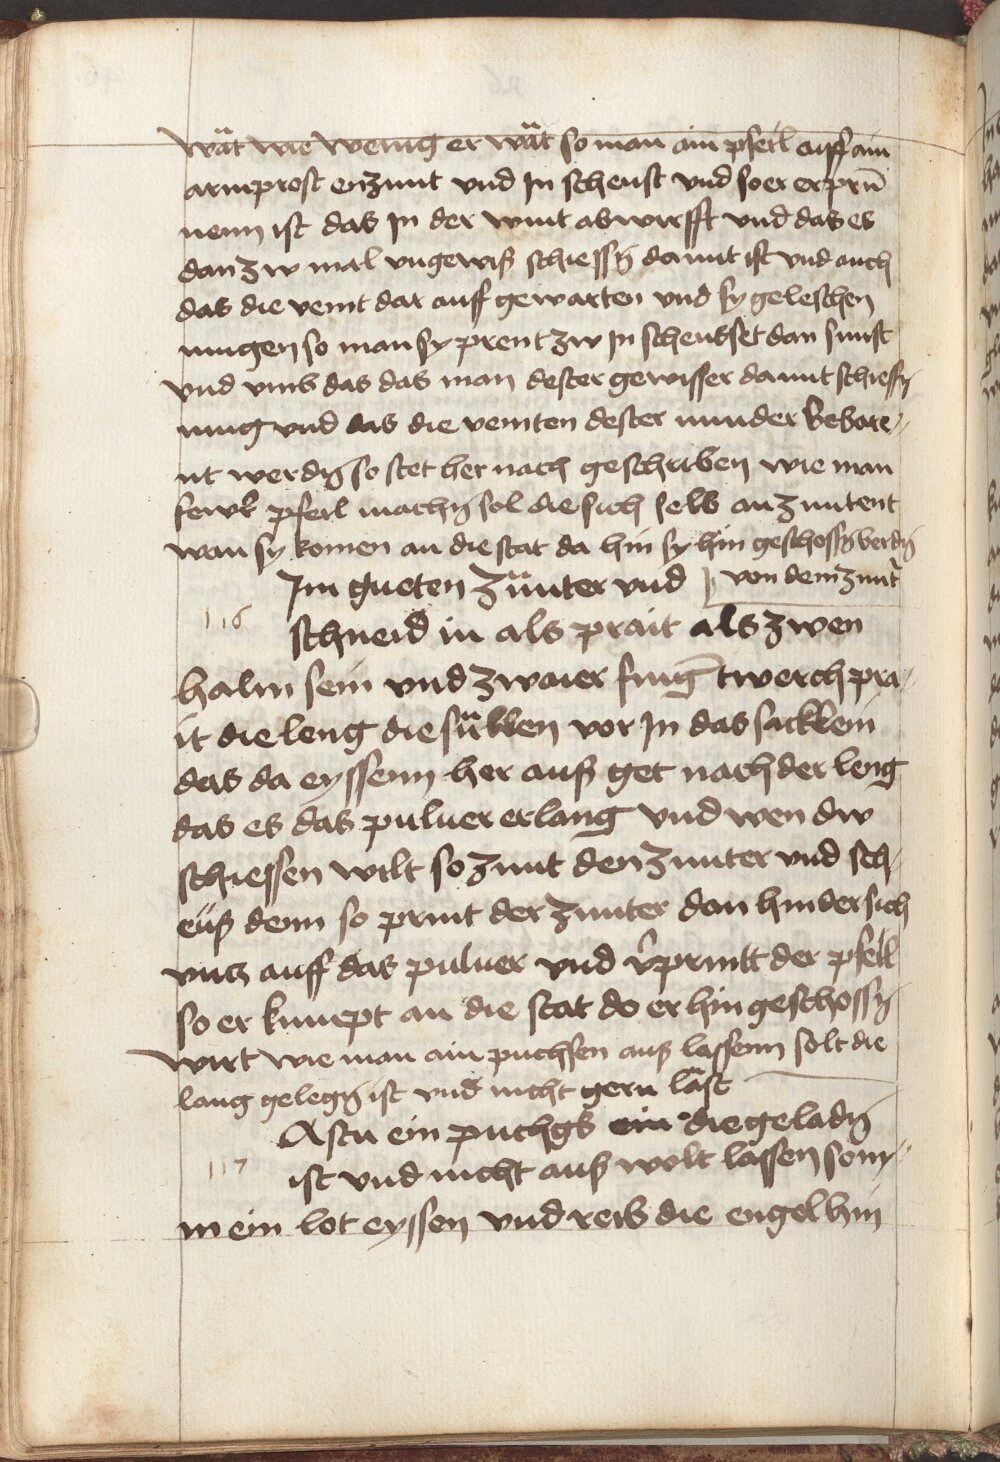 wät wie wenig er wät so man ain pfeil auff ain
armprost enzunt vnd In scheust vnd so er erprū
nenn ist das In der wint abwirfft vnd das es
dan zw mal vngewiß schiessn̄ damit ist vnd auch
das die veint dar auff gewarten vnd sy geleschen
mugen so man sy prent zw In scheusset dan sunst
vnd vmb das das man dester gewisser damit schiessn̄
mug vnd das die veinten dester minder bebare-
nt werdn̄ so stet her nach geschriben wie man
fewr pfeil machn̄ sol die sich selb anzuntent
wan sy komen an die stat da hin sy hin geschossn̄ werdn̄
Im gueten zünter vnd von dem zunt̄
116
schneid in als prait als zwen
halm sein vnd zwaier finḡ twerch pra-
it die leng die sükken vor In das sacklein
das da eyssenn her auß get nach der leng
das es das puluer erlang vnd wen dw
schiessen wilt so zunt den zunter vnd sch-
eüß denn so print der zunter dan hinder sich
vntz auff das puluer vnd v̄printt der pfeill
so er kumpt an die stat do er hin geschossn̄
wirt wie man ain puchsen auß lassenn solt die
lang gelegn̄ ist vnd nicht gern läst
Astu ein puchgs ein die geladn̄
117
ist vnd nicht auß wolt lassen so ny-
m ein lot eyssen vnd reib die engel hin